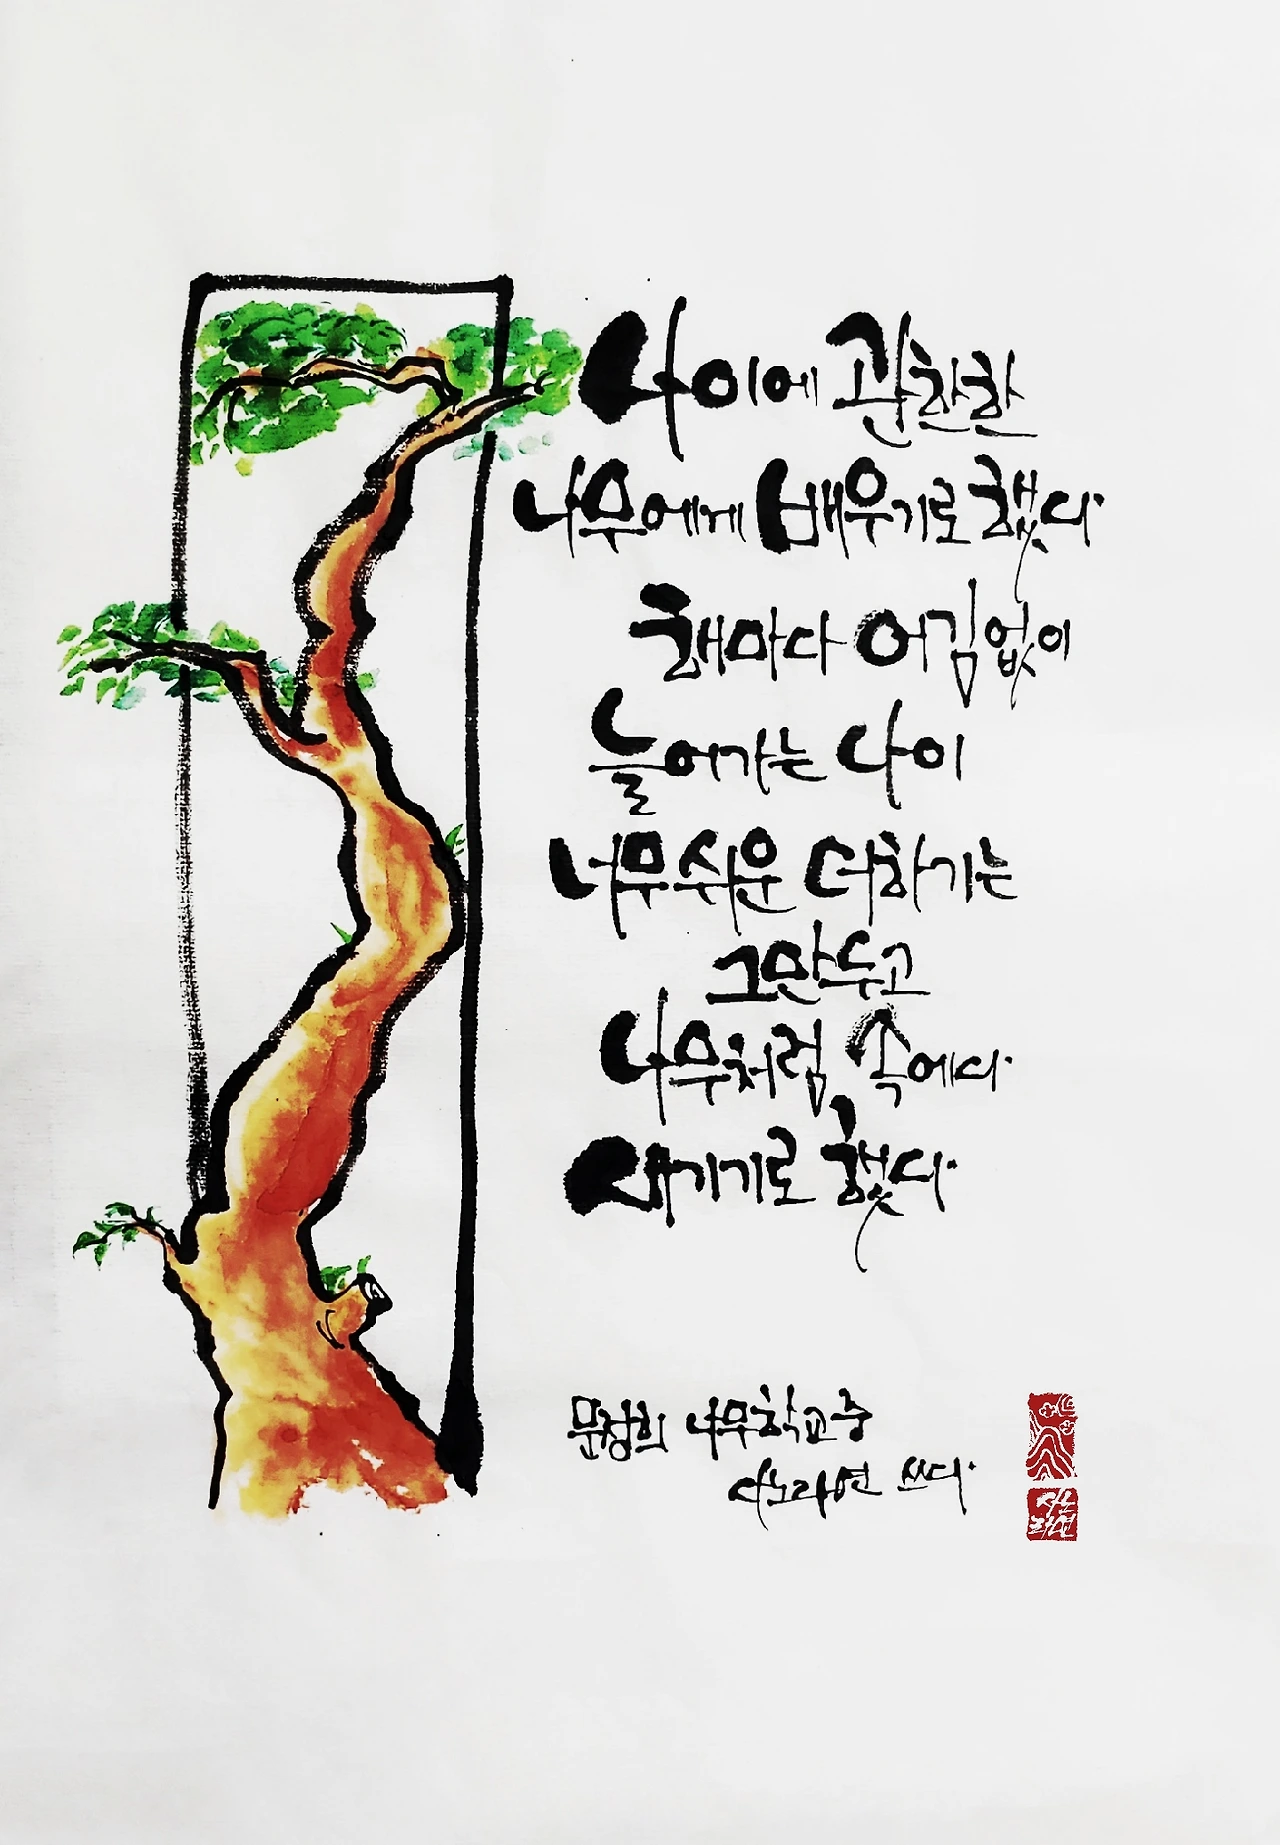 나이에 관한한
나무에게 배우기로 했다
해마다 어김없이
늘어가는 나이
너무 쉬운 더하기는
그만두고
나무처럼 속에다
새기기로 했다
문정희 나무학교 중
쓰다